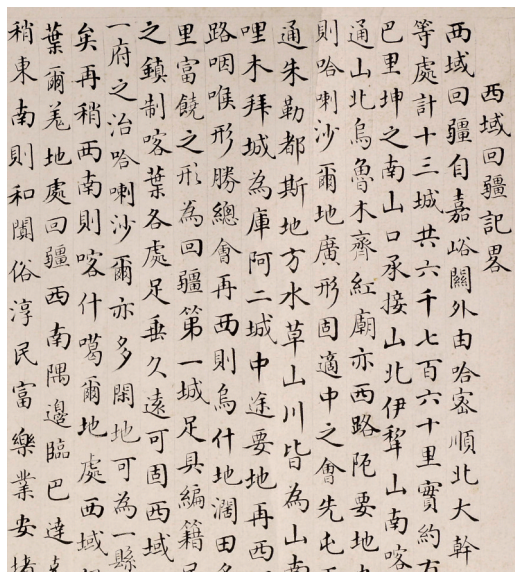 西域回疆記畧
西域回疆自嘉峪關外由哈宻順北大幹
等處計十三城共六千七百六十里實約
巴里坤之南山口承接山北伊犂山南喀
通山北烏魯木齊紅廟亦西路阨要地
則哈喇沙爾地廣形固適中之會先屯
通朱勒都斯地方水草山川皆為山南
哩木拜城為庫阿二城中途要地再西
路咽喉形勝總會再西則烏什地濶田
里富饒之形為回疆第一城足具編籍
之鎮制喀葉各處足垂久遠可固西域
一府之治哈喇沙爾亦多閑地可為一縣
矣再稍西南則喀什噶爾地處西域
葉爾羗地處回疆西南隅邊臨巴達
稍東南則和闐俗淳民富樂業安堵